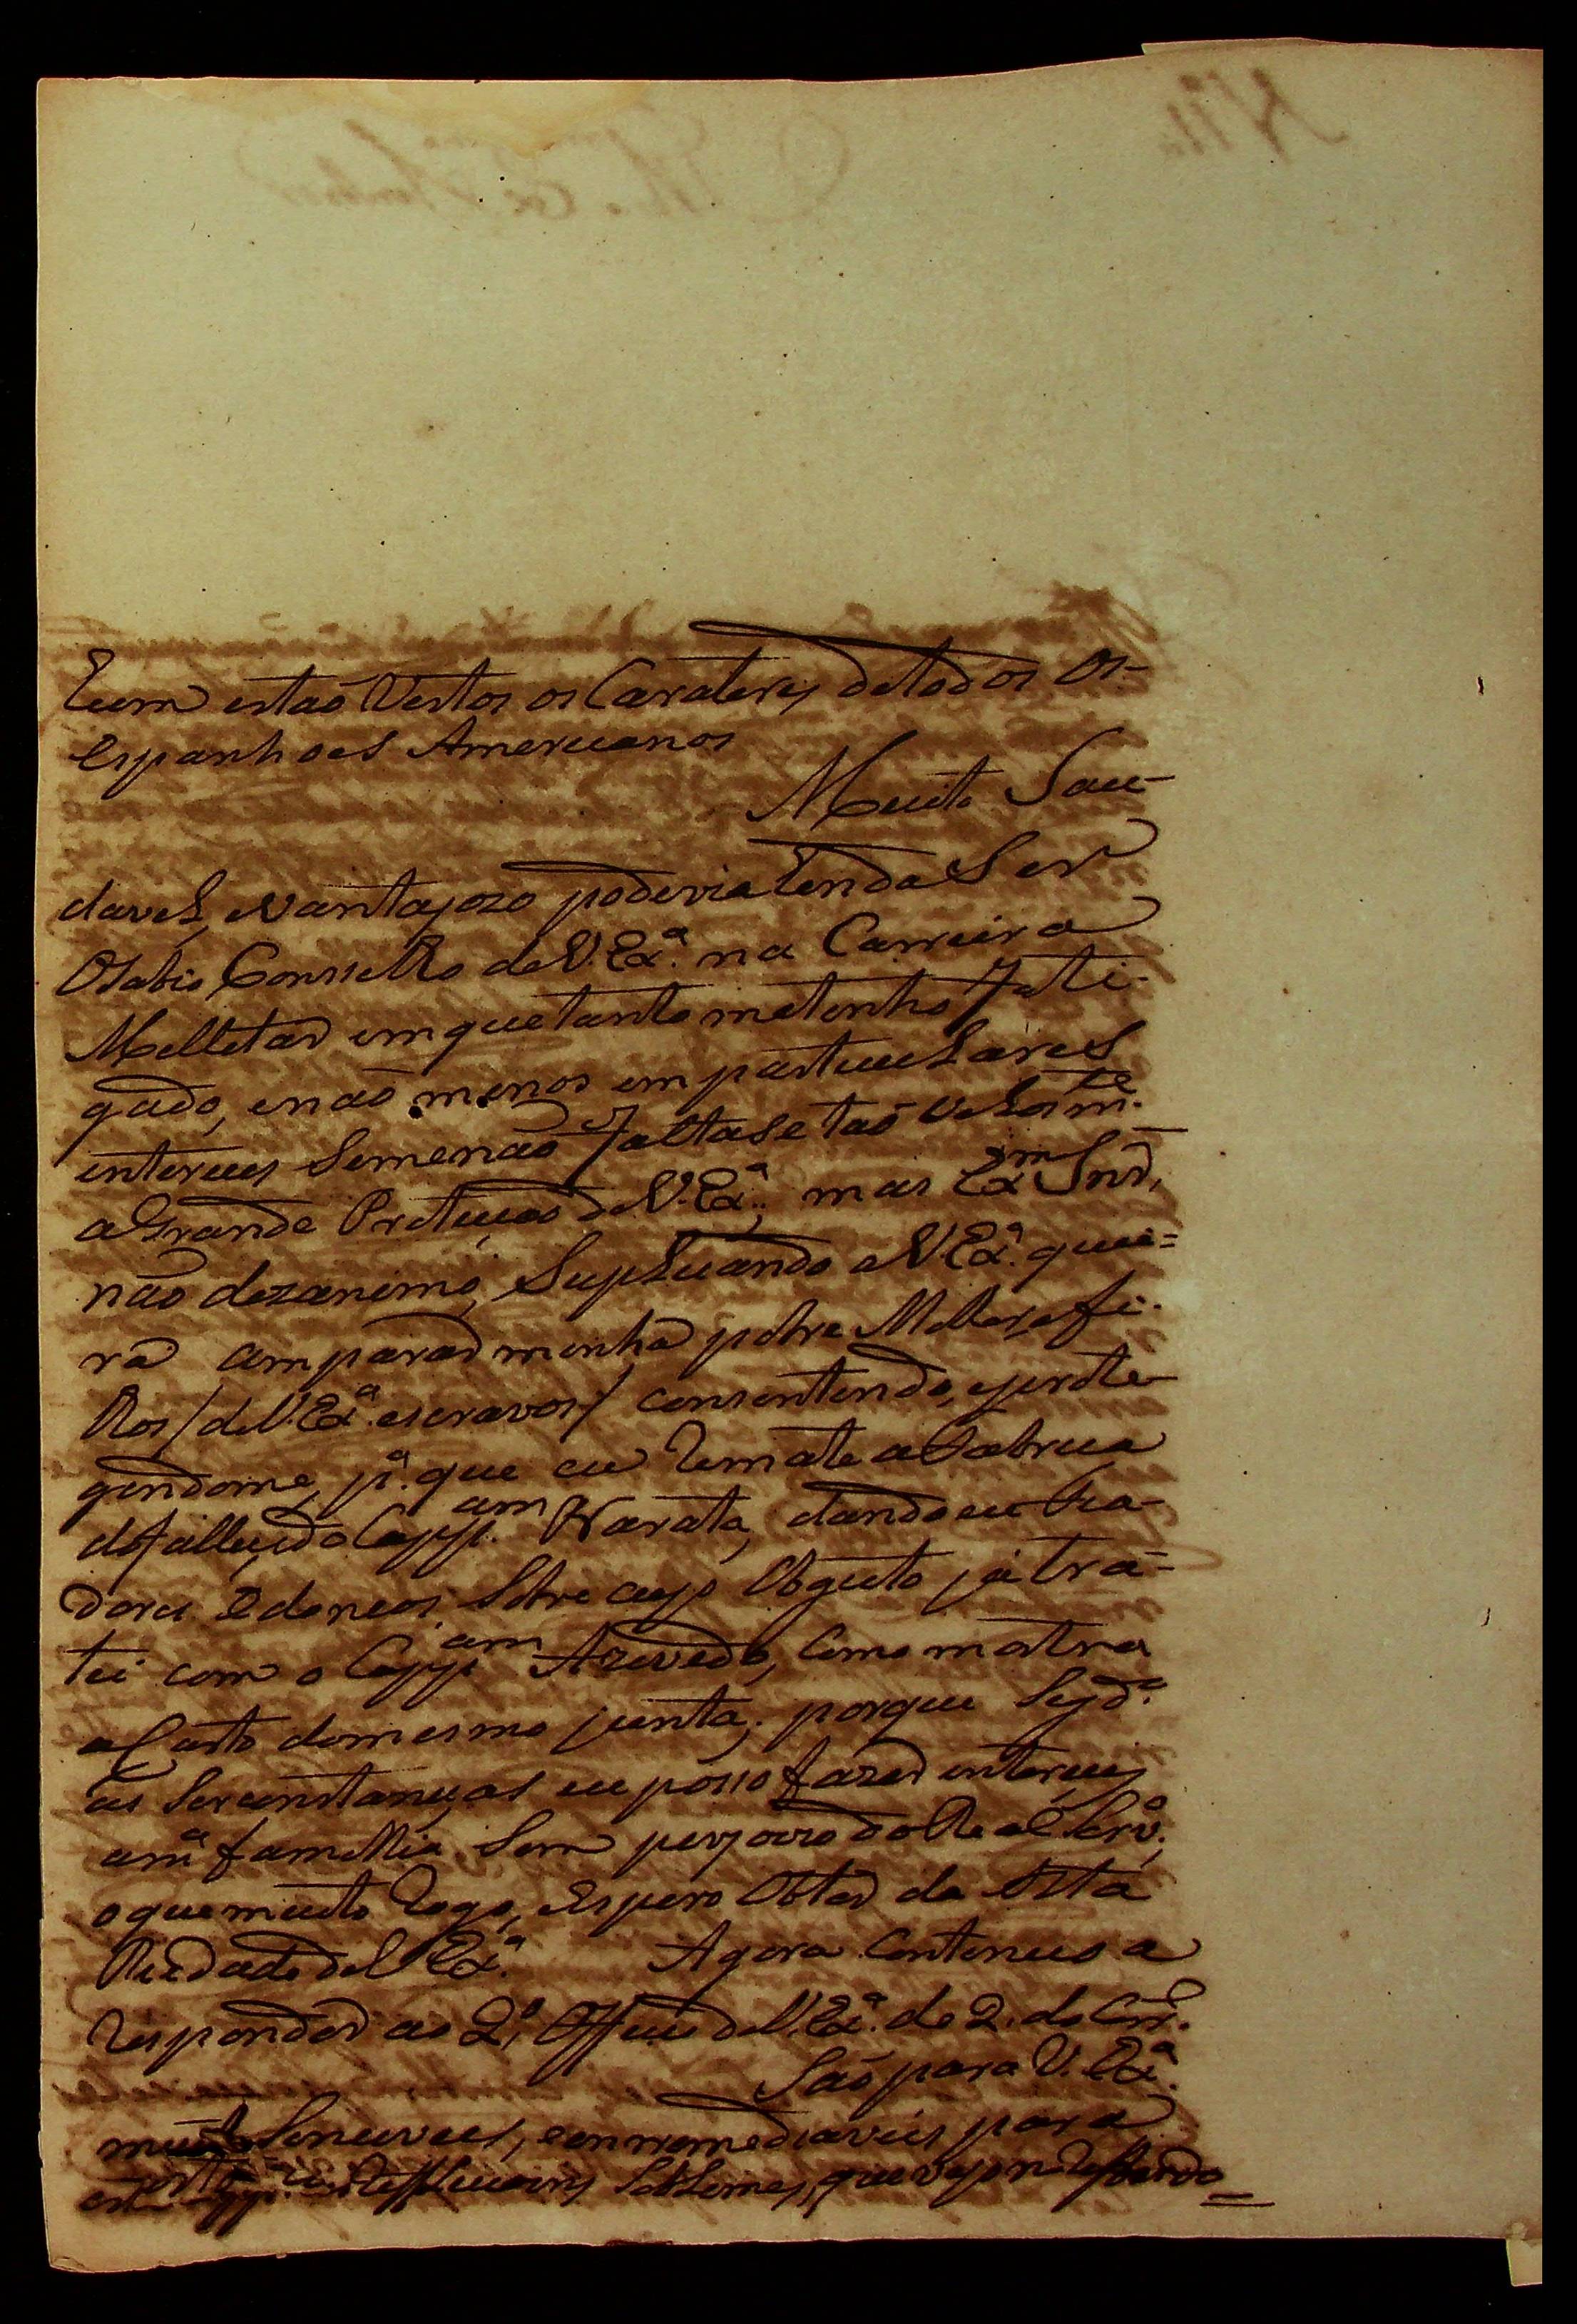 Eem estaõ Vestos os Carateres detodos os
Espanhoes Americanos
Muito Sau-
davel, evantajozo poderia Senda Ser
OSabio Conselho deV. Exª. na Carreira
Melletar emquetanto metenho Fati-
gado, enaõ menos emparteculares
entereces Semenaõ Faltase taõ
aGrande Proteçaõ deV. Exª.; mas Exm Snr,
naõ dezanimo, Supleicando aV Exª. quei=
ra amparar minha pobre Molher, efi-
lhos / deV. Exª. escravos / consentindo, eprote-
gendome, pª. que eu Remate aFabrica
dofallecido Cappam. Barata, dando eu Fia-
dores Edoneos, Sobre cujo Obgecto já tra-
tei com o Cappam Azevedo, Como mostra
aCarta domesmo junta; porque Segdº.
as Sercunstançias eu posso fazer enterçes
amª familhia, Sem perjoizo doReal Servº.,
oquemuito Rogo, eEspero Obter da Alta
Piedade deV Exª. Agora Contenuo a
Responder ao 2º. Officio deV. Exª. de 2. do Corr.
Saõ para V. Exª.
muito Sencives, eenremediaveis para
este